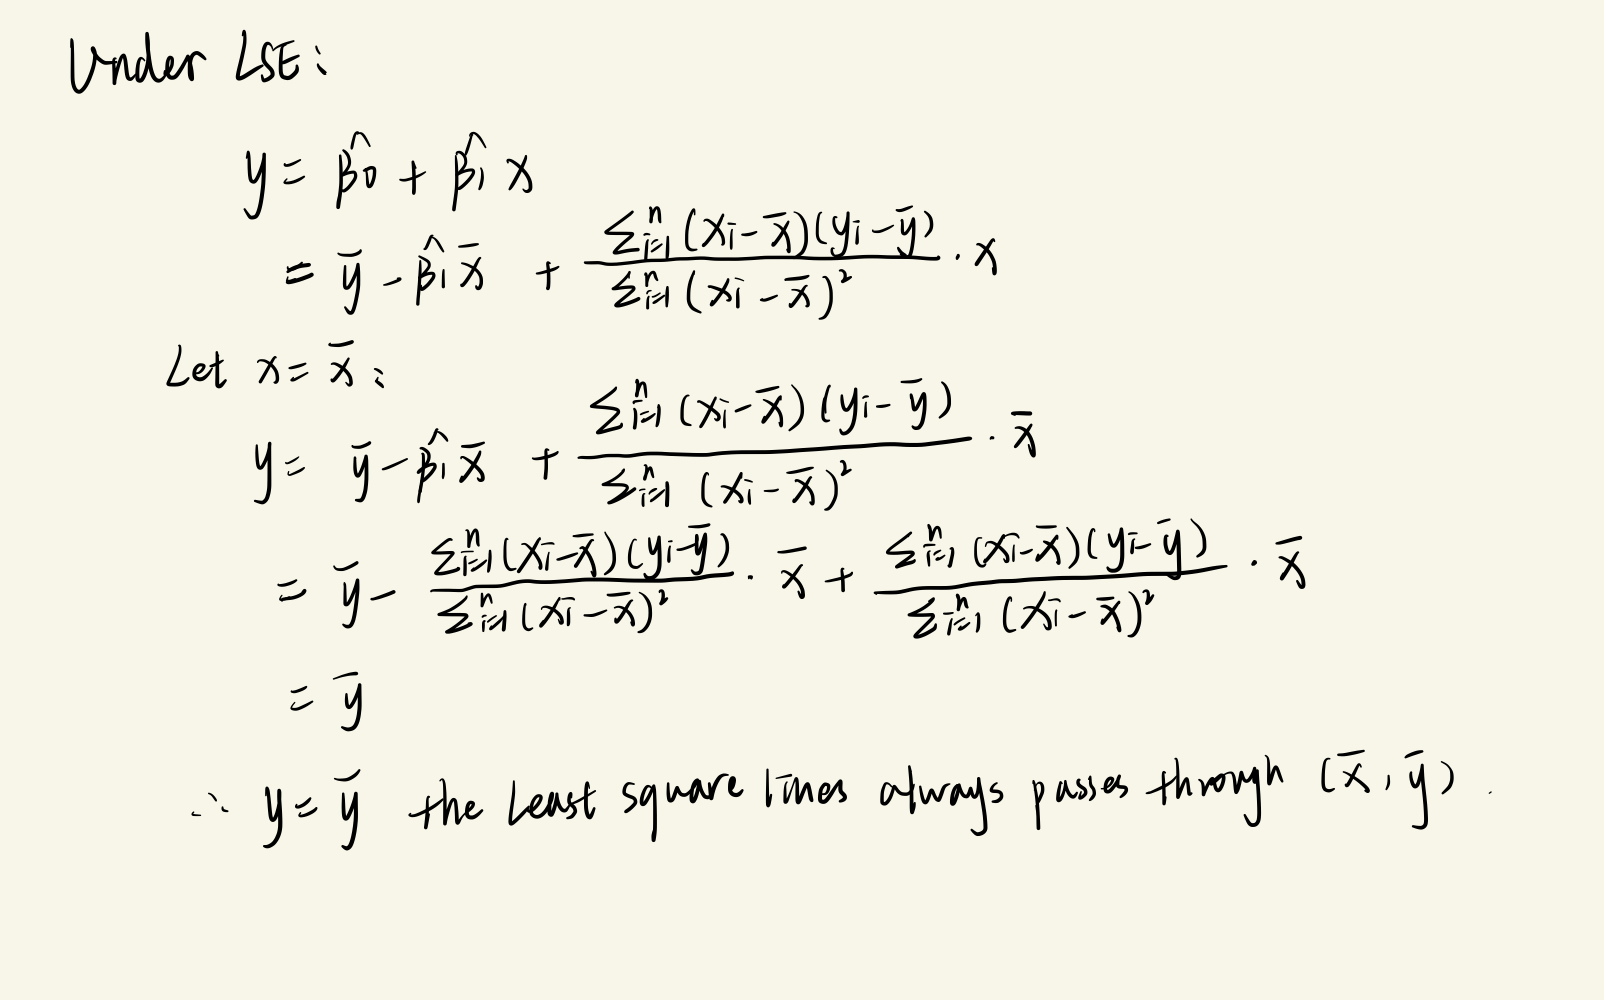 Under LSE:
y = β̂0 + β̂1 x
= ȳ - β̂1 x̄ + \frac{∑_{i=1}^{n} (xi - x̄)(yi - ȳ)}{∑_{i=1}^{n} (xi - x̄)^2} · x
Let x = x̄ :
y = ȳ - β̂1 x̄ + \frac{∑_{i=1}^{n} (xi - x̄)(yi - ȳ)}{∑_{i=1}^{n} (xi - x̄)^2} · x̄
= ȳ - \frac{∑_{i=1}^{n} (xi - x̄)(yi - ȳ)}{∑_{i=1}^{n} (xi - x̄)^2} · x̄ + \frac{∑_{i=1}^{n} (xi - x̄)(yi - ȳ)}{∑_{i=1}^{n} (xi - x̄)^2} · x̄
= ȳ
∴ y = ȳ the least square lines always passes through (x̄, ȳ).